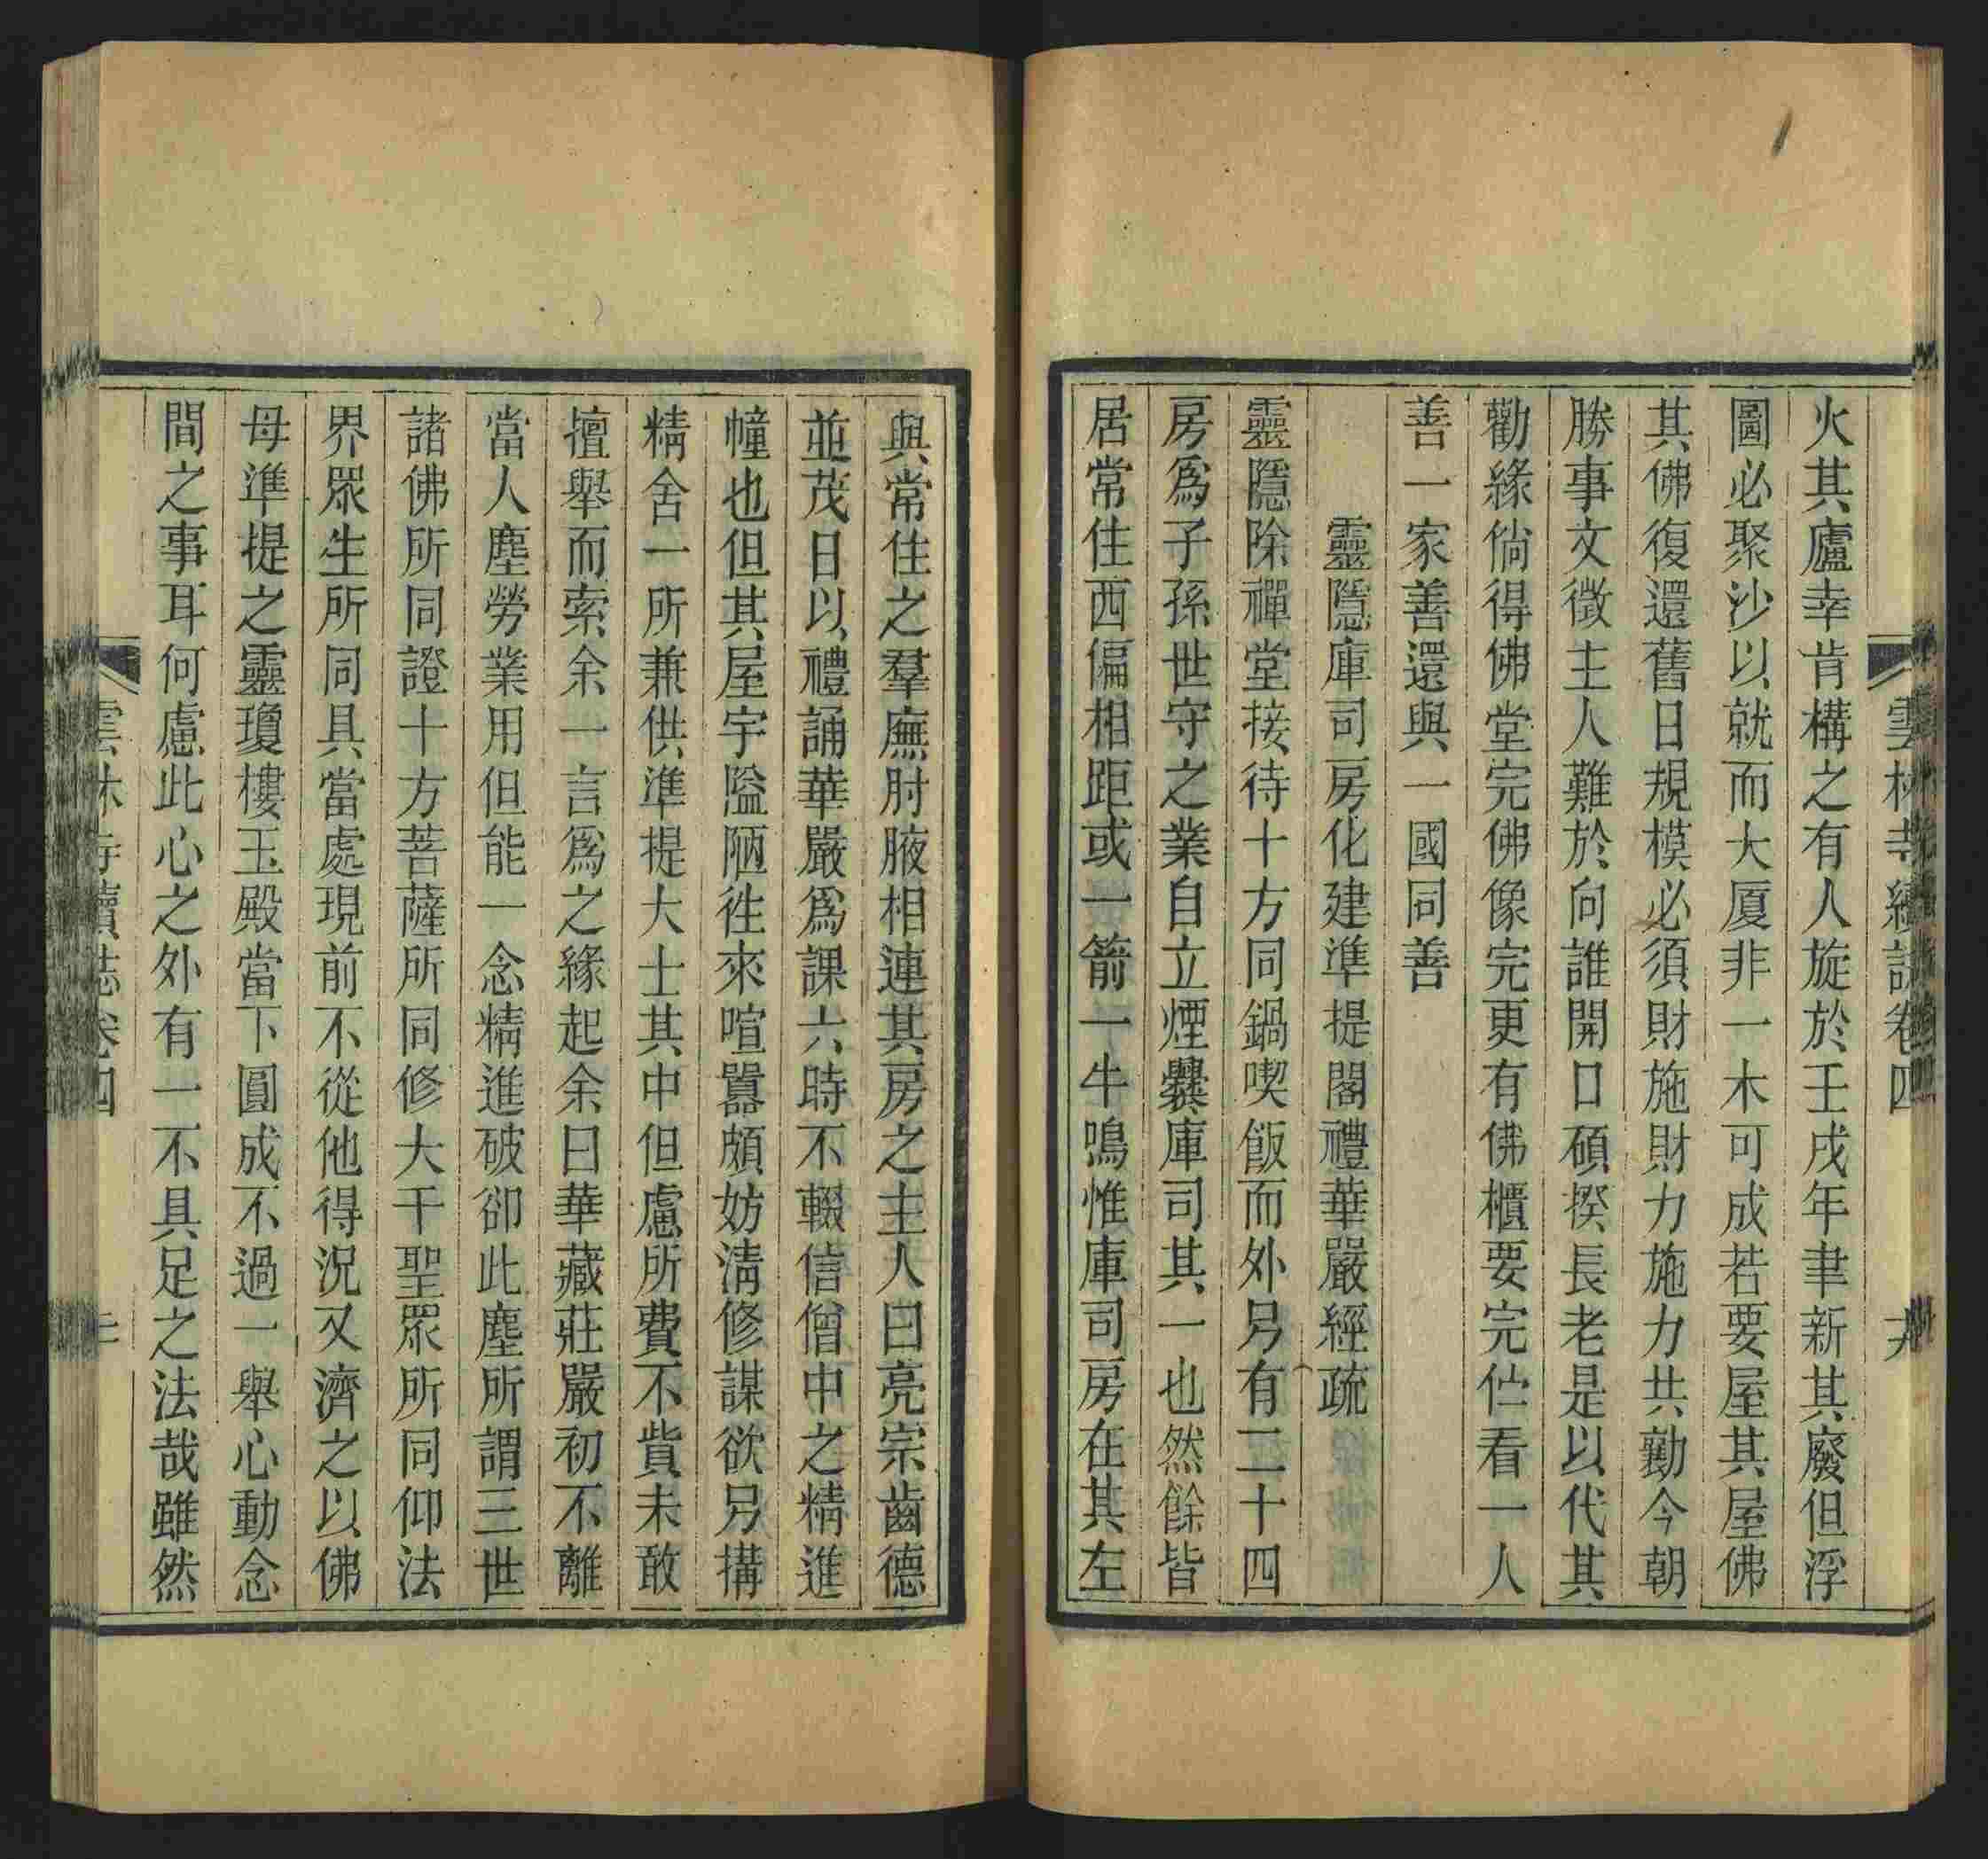 雲林寺續誌卷四
火其廬幸肯構之有人旋於壬戌年聿新其廢但浮
圖必聚沙以就而大厦非一木可成若要屋其屋佛
其佛復還舊日規模必須財施財力施力共勷今朝
勝事文徵主人難於向誰開口碩揆長老是以代其
勸緣倘得佛堂完佛像完更有佛櫃要完伫看一人
善一家善還與一國同善
靈隱庫司房化建準提閣禮華嚴經疏
靈隱除禪堂接待十方同鍋喫飯而外另有二十四
房爲子孫世守之業自立煙爨庫司其一也然餘皆
居常住西偏相距或一箭一牛鳴惟庫司房在其左
與常住之羣廡肘腋相連其房之主人曰亮宗齒德
並茂日以禮誦華嚴爲課六時不輟信僧中之精進
幢也但其屋宇隘陋徃來喧囂頗妨淸修謀欲另搆
精舍一所兼供準提大士其中但慮所費不貲未敢
擅舉而索余一言爲之緣起余曰華藏莊嚴初不離
當人塵勞業用但能一念精進破卻此塵所謂三世
諸佛所同證十方菩薩所同修大千聖眾所同仰法
界眾生所同具當處現前不從他得況又濟之以佛
母準提之靈瓊樓玉殿當下圓成不過一舉心動念
間之事耳何慮此心之外有一不具足之法哉雖然
雲林寺續誌卷四